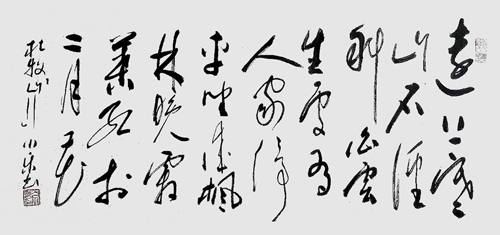 遠上寒
山石徑
斜白雲
生處有
人家停
車坐愛楓
林晚霜
葉紅於
二月花
杜牧山行